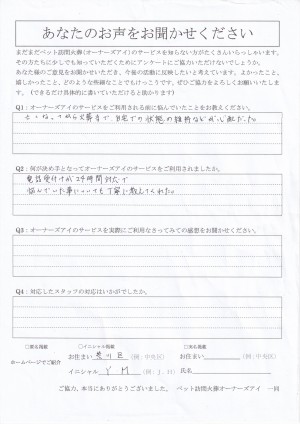 あなたのお声をお聞かせください
まだまだペット訪問火葬(オーナーズアイ)のサービスを知らない方がたくさんいらっしゃいます。
その方たちに少しでも知っていただくためにアンケートにご協力いただけないでしょうか。
あなた様のご意見をお聞かせいただき、今後の活動に反映したいと考えています。よかったこと、
嬉しかったこと、どのような些細なことでもけっこうです。ぜひご協力をよろしくお願いいたしま
す。(できるだけ具体的に書いていただけると助かります)
Q1:オーナーズアイのサービスをご利用される前に悩んでいたことをお教えください。
亡くなってから火葬まで自宅での状態の維持などが心配だった。
Q2:何が決め手となってオーナーズアイのサービスをご利用されましたか。
電話受付が24時間対応で
悩んでいた事についても丁寧に教えてくれた。
Q3:オーナーズアイのサービスを実際にご利用なさってみての感想をお聞かせください。
Q4:対応したスタッフの対応はいかがでしたか。
□匿名掲載 □イニシャル掲載 □実名掲載
お住まい 荒川区 (例:中央区) お住まい (例:中央区)
ホームページでご紹介
イニシャル Y M (例:J.H) 氏名
ご協力、本当にありがとうございました。 ペット訪問火葬オーナーズアイ 一同